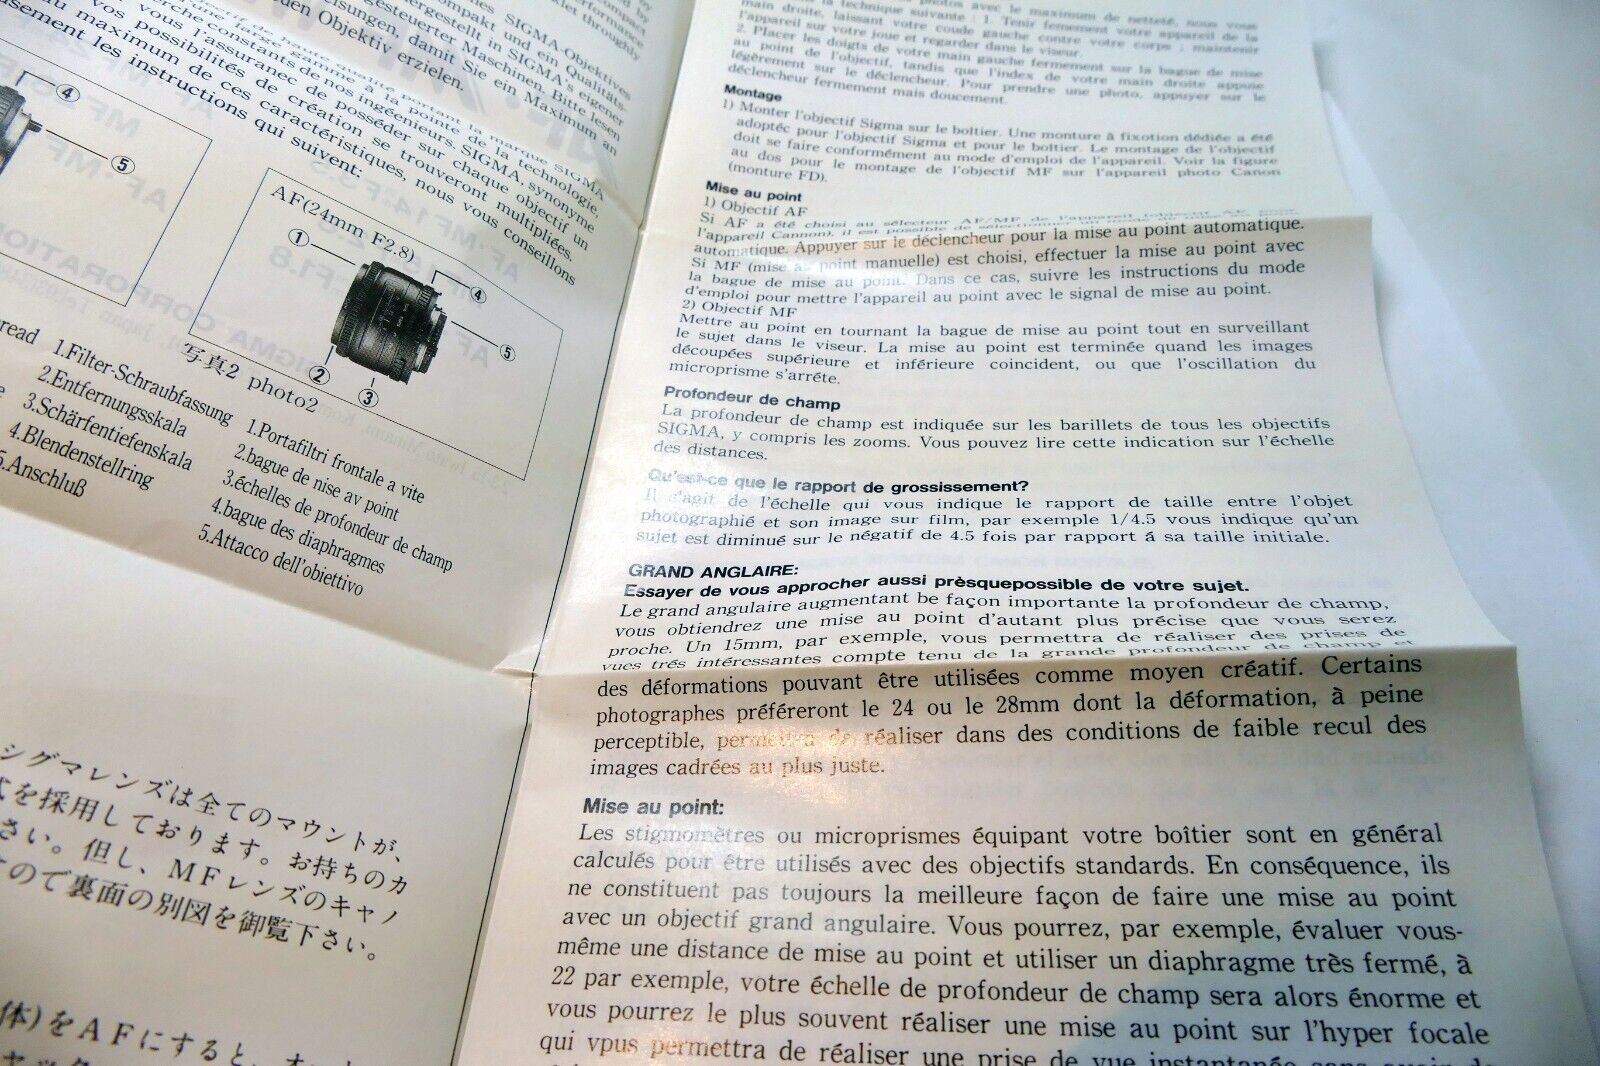 SIGMA-Objektives
kompakt und ein Qualitäts-
hergestellt in SIGMA's eigener
gesteuerter Maschinen. Bitte lesen
eisungen, damit Sie ein Maximum an
uen Objektiv erzielen.
haute qualité portant la marque SIGMA
gamme à la pointe de la technologie,
erche constants de nos ingénieurs. SIGMA, synonyme
vous l'assurance de posséder sur chaque objectif un
vos possibilités de création se trouveront multipliées.
au maximum de ces caractéristiques, nous vous conseillons
usement les instructions qui suivent:
④
⑤
AF(24mm F2.8)
①
④
⑤
②
③
写真2 photo2
read
1.Filter-Schraubfassung
2.Entfernungsskala
3.Schärfentiefenskala
4.Blendenstellring
5.Anschluß
1.Portafiltri frontale a vite
2.bague de nise av point
3.échelles de profondeur de champ
4.bague des diaphragmes
5.Attacco dell'obiettivo
シグマレンズは全てのマウントが、
を採用しております。お持ちのカ
さい。但し、MFレンズのキャノ
ので裏面の別図を御覧下さい。
体)をAFにすると、オー
photos avec le maximum de netteté, nous vous
la technique suivante : 1. Tenir fermement votre appareil de la
main droite, laissant votre coude gauche contre votre corps ; maintenir
l'appareil sur votre joue et regarder dans le viseur.
2. Placer les doigts de votre main gauche fermement sur la bague de mise
au point de l'objectif, tandis que l'index de votre main droite appuie
légèrement sur le déclencheur. Pour prendre une photo, appuyer sur le
déclencheur fermement mais doucement.
Montage
1) Monter l'objectif Sigma sur le boîtier. Une monture à fixotion dédiée a été
adoptée pour l'objectif Sigma et pour le boîtier. Le montage de l'objectif
doit se faire conformément au mode d'emploi de l'appareil. Voir la figure
au dos pour le montage de l'objectif MF sur l'appareil photo Canon
(monture FD).
Mise au point
1) Objectif AF
Si AF a été choisi au sélecteur AF/MF de l'appareil
l'appareil Cannon), il est possible de
automatique. Appuyer sur le déclencheur pour la mise au point automatique.
Si MF (mise au point manuelle) est choisi, effectuer la mise au point avec
la bague de mise au point. Dans ce cas, suivre les instructions du mode
d'emploi pour mettre l'appareil au point avec le signal de mise au point.
2) Objectif MF
Mettre au point en tournant la bague de mise au point tout en surveillant
le sujet dans le viseur. La mise au point est terminée quand les images
découpées supérieure et inférieure coincident, ou que l'oscillation du
microprisme s'arrête.
Profondeur de champ
La profondeur de champ est indiquée sur les barillets de tous les objectifs
SIGMA, y compris les zooms. Vous pouvez lire cette indication sur l'échelle
des distances.
Qu'est-ce que le rapport de grossissement?
Il s'agit de l'échelle qui vous indique le rapport de taille entre l'objet
photographié et son image sur film, par exemple 1/4.5 vous indique qu'un
sujet est diminué sur le négatif de 4.5 fois par rapport á sa taille initiale.
GRAND ANGLAIRE:
Essayer de vous approcher aussi prèsquepossible de votre sujet.
Le grand angulaire augmentant be façon importante la profondeur de champ,
vous obtiendrez une mise au point d'autant plus précise que vous serez
proche. Un 15mm, par exemple, vous permettra de réaliser des prises de
vues trés intéressantes compte tenu de la grande profondeur de champ et
des déformations pouvant être utilisées comme moyen créatif. Certains
photographes préféreront le 24 ou le 28mm dont la déformation, à peine
perceptible, permettra de réaliser dans des conditions de faible recul des
images cadrées au plus juste.
Mise au point:
Les stigmomètres ou microprismes équipant votre boîtier sont en général
calculés pour être utilisés avec des objectifs standards. En conséquence, ils
ne constituent pas toujours la meilleure façon de faire une mise au point
avec un objectif grand angulaire. Vous pourrez, par exemple, évaluer vous-
même une distance de mise au point et utiliser un diaphragme très fermé, à
22 par exemple, votre échelle de profondeur de champ sera alors énorme et
vous pourrez le plus souvent réaliser une mise au point sur l'hyper focale
qui vpus permettra de réaliser une prise de vue instantanée sans